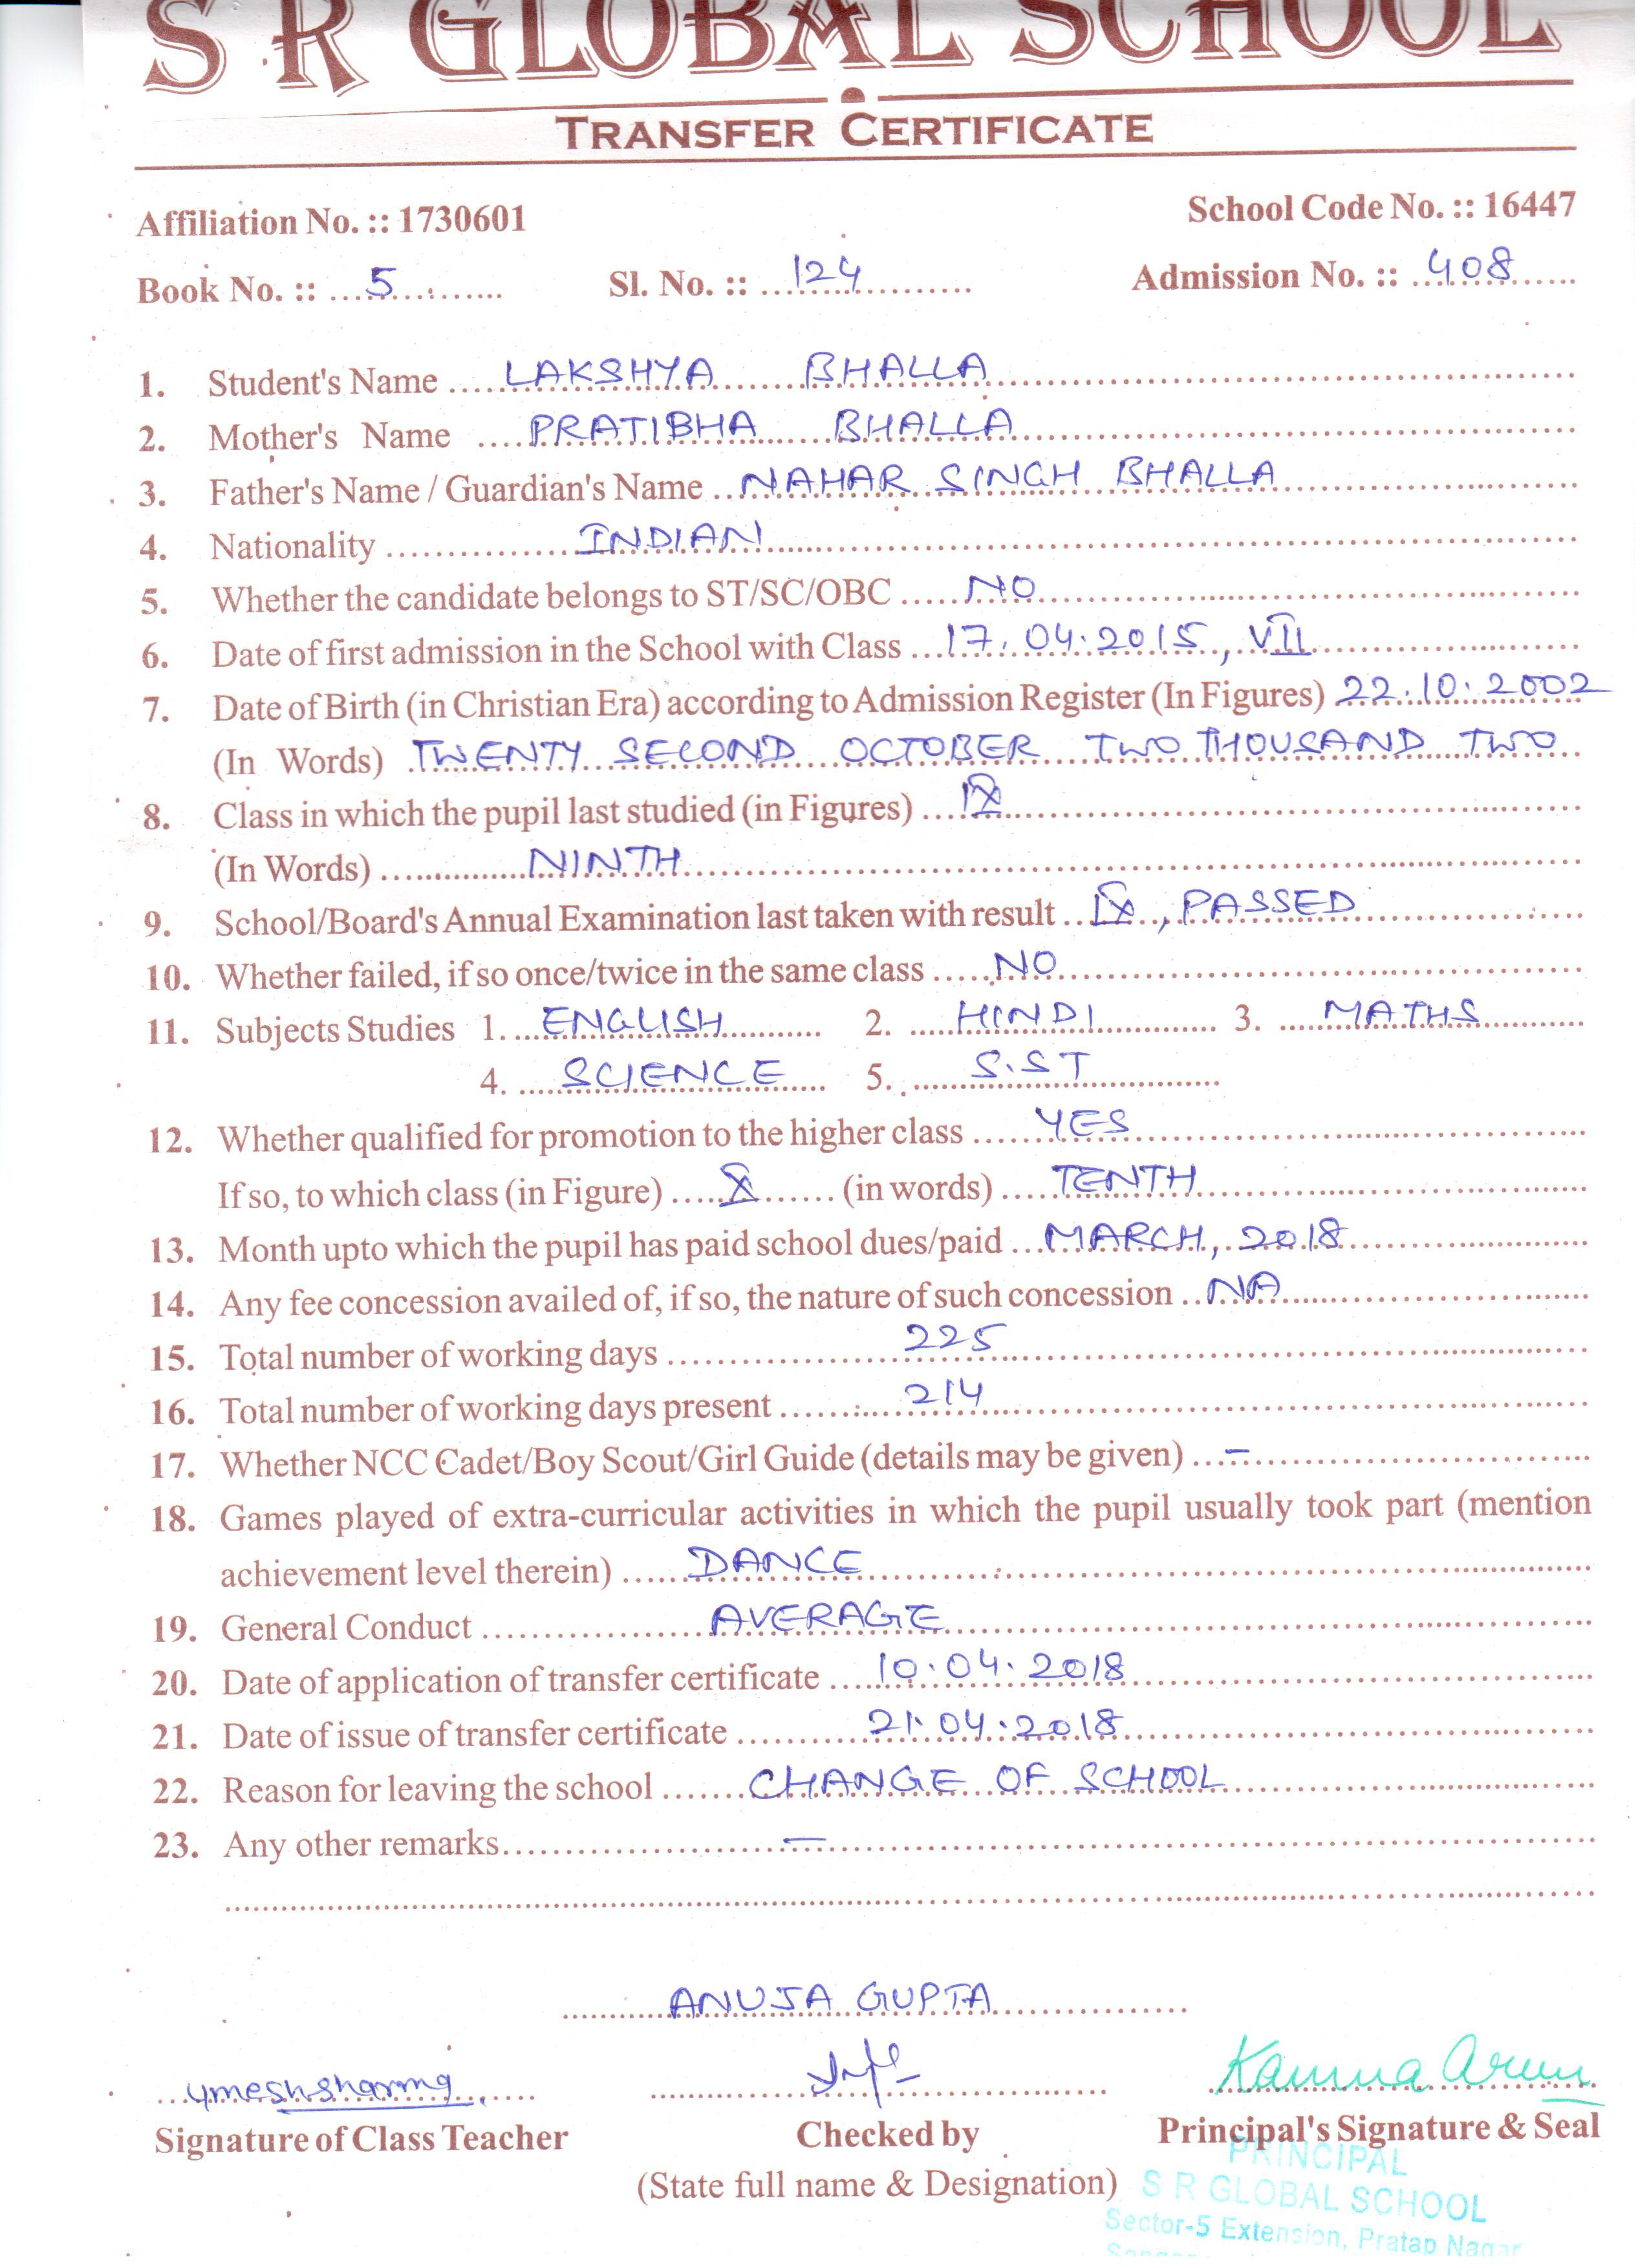 S R GLOBAL SCHOOL
TRANSFER CERTIFICATE
Affiliation No. :: 1730601 School Code No. :: 16447
Book No. :: 5 Sl. No. :: 124 Admission No. :: 408
1. Student's Name LAKSHYA BHALLA
2. Mother's Name PRATIBHA BHALLA
3. Father's Name / Guardian's Name NAHAR SINGH BHALLA
4. Nationality INDIAN
5. Whether the candidate belongs to ST/SC/OBC NO
6. Date of first admission in the School with Class 17.04.2015, VII
7. Date of Birth (in Christian Era) according to Admission Register (In Figures) 22.10.2002
(In Words) TWENTY SECOND OCTOBER TWO THOUSAND TWO
8. Class in which the pupil last studied (in Figures) IX
(In Words) NINTH
9. School/Board's Annual Examination last taken with result IX, PASSED
10. Whether failed, if so once/twice in the same class NO
11. Subjects Studies 1. ENGLISH 2. HINDI 3. MATHS
4. SCIENCE 5. S.ST
12. Whether qualified for promotion to the higher class YES
If so, to which class (in Figure) X (in words) TENTH
13. Month upto which the pupil has paid school dues/paid MARCH, 2018
14. Any fee concession availed of, if so, the nature of such concession NA
15. Total number of working days 225
16. Total number of working days present 214
17. Whether NCC Cadet/Boy Scout/Girl Guide (details may be given) –
18. Games played of extra-curricular activities in which the pupil usually took part (mention
achievement level therein) DANCE
19. General Conduct AVERAGE
20. Date of application of transfer certificate 10.04.2018
21. Date of issue of transfer certificate 21.04.2018
22. Reason for leaving the school CHANGE OF SCHOOL
23. Any other remarks —
ANUJA GUPTA
umesh sharma Kamna Arun
Signature of Class Teacher Checked by Principal's Signature & Seal
(State full name & Designation)
PRINCIPAL
S R GLOBAL SCHOOL
Sector-5 Extension, Pratap Nagar